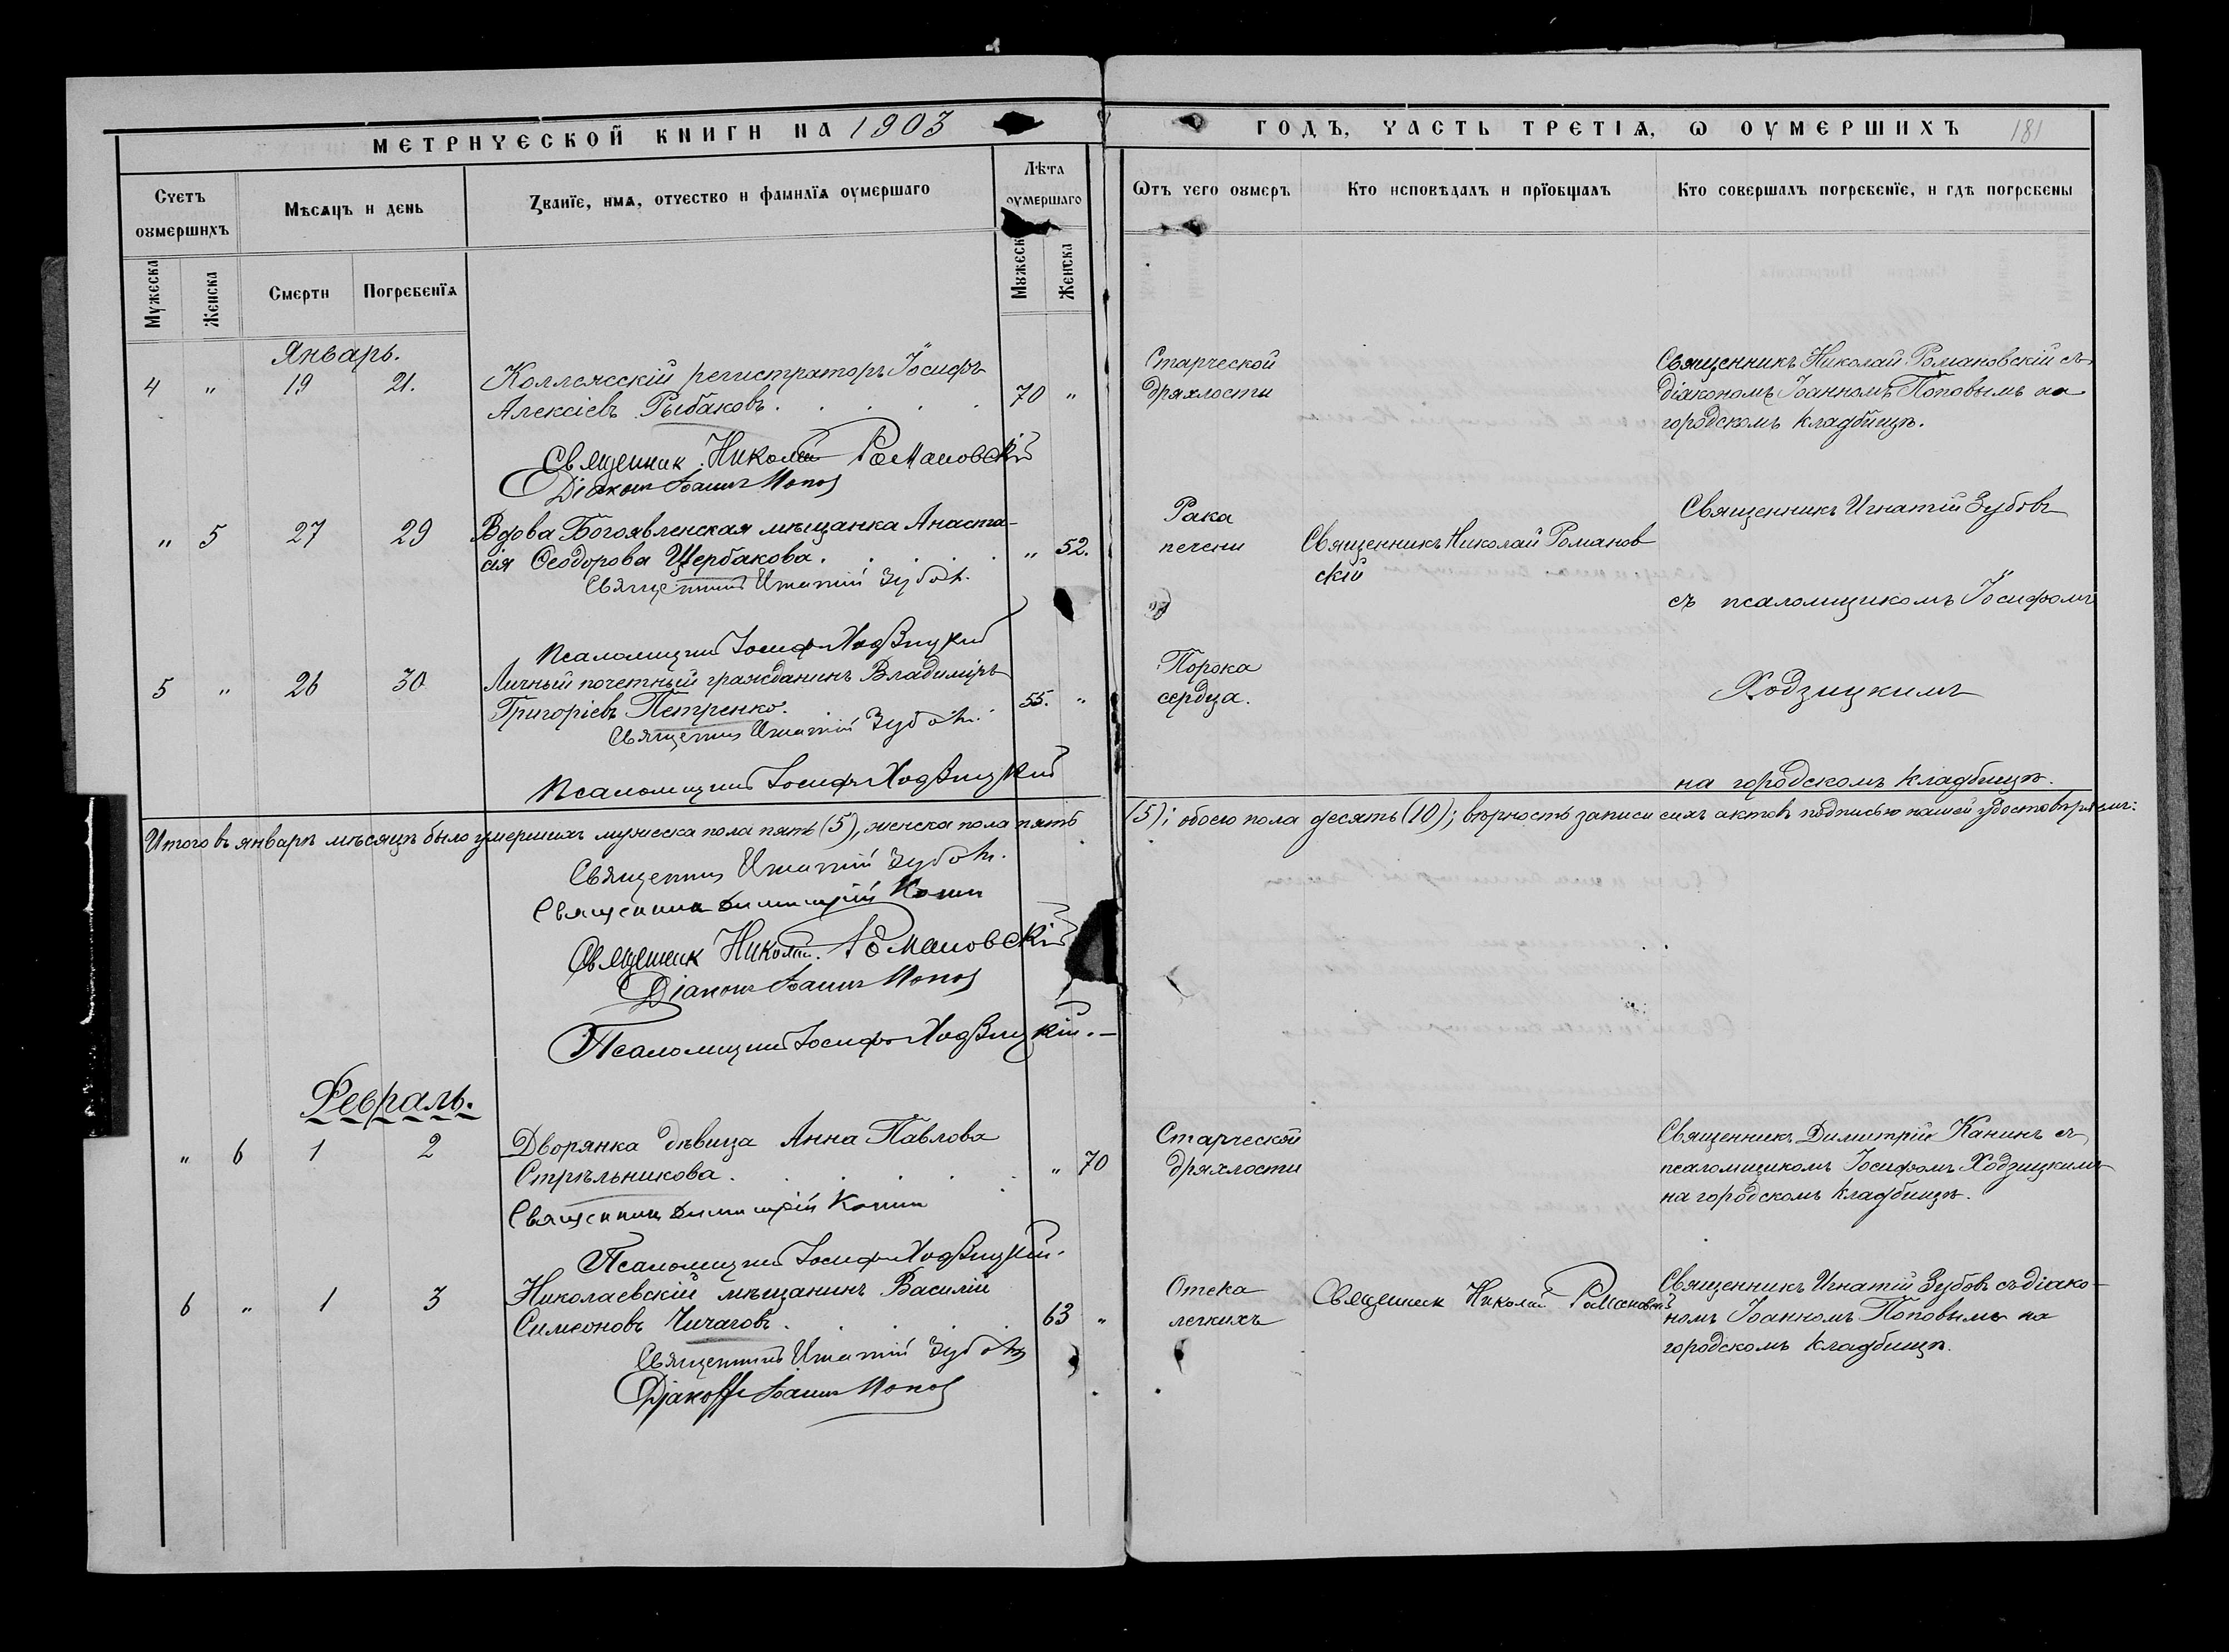 МЕТРИЧЕСКОЙ КНИГИ НА 1903
ГОДЪ, ЧАСТЬ ТРЕТІѦ, Ѡ ОУМЕРШИХЪ 181
Счетъ оумершихъ
Мѣсѧцъ и день
Званїе, имѧ, отчество и фамилїѧ оумершаго
Лѣта оумершаго
Ѿтъ чего оумеръ
Кто исповѣдалъ и прїобщалъ
Кто совершалъ погребенїе, и гдѣ погребены
Мужеска
Женска
Смерти
Погребенїѧ
Мужеск
Женска
Январь.
4 " 19 21.
Коллежскій регистраторъ Іосифъ
Алексіевъ Рыбаковъ. 70 "
Священник Николай Романовскій
Діаконъ Іоаннъ Попов
Старческой
дряхлости
Священникъ Николай Романовскій съ
діакономъ Іоанномъ Поповымъ на
городскомъ кладбищѣ.
" 5 27 29
Вдова Богоявленская мѣщанка Анаста-
сія Ѳеодорова Щербакова. " 52.
Священникъ Игнатій Зубовъ.
Псаломщикъ Іосифъ Ходзицкій
Рака
печени
Священникъ Николай Романов
скій
Священникъ Игнатій Зубовъ
съ псаломщикомъ Іосифомъ
5 " 26 30
Личный почетный гражданинъ Владиміръ
Григоріевъ Петренко. 55. "
Священникъ Игнатій Зубовъ.
Псаломщикъ Іосифъ Ходзицкій
Порока
сердца.
Ходзицкимъ
на городскомъ кладбищѣ.
Итого въ январѣ мѣсяцѣ было умершихъ мужеска пола пять (5), женска пола пять
(5); обоего пола десять (10); вѣрность записи сихъ актовъ подписью нашей удостовѣряемъ:
Священникъ Игнатій Зубовъ.
Священникъ Димитрій Канин
Священик Николай Романовскій
Діаконъ Іоаннъ Попов
Псаломщикъ Іосифъ Ходзицкій.—
Февраль.
" 6 1 2
Дворянка дѣвица Анна Павлова
Стрѣльникова. " 70
Священникъ Димитрій Канин
Псаломщикъ Іосифъ Ходзицкій.
Старческой
дряхлости
Священникъ Димитрій Канинъ съ
псаломщикомъ Іосифомъ Ходзицкимъ
на городскомъ кладбищѣ.
6 " 1 3
Николаевскій мѣщанинъ Василій
Симеоновъ Чичаговъ. 63 "
Священникъ Игнатій Зубовъ
Діаконъ Іоаннъ Попов
Отека
легкихъ
Священик Николай Романовскій
Священникъ Игнатій Зубовъ съ діако-
номъ Іоанномъ Поповымъ на
городскомъ кладбищѣ.